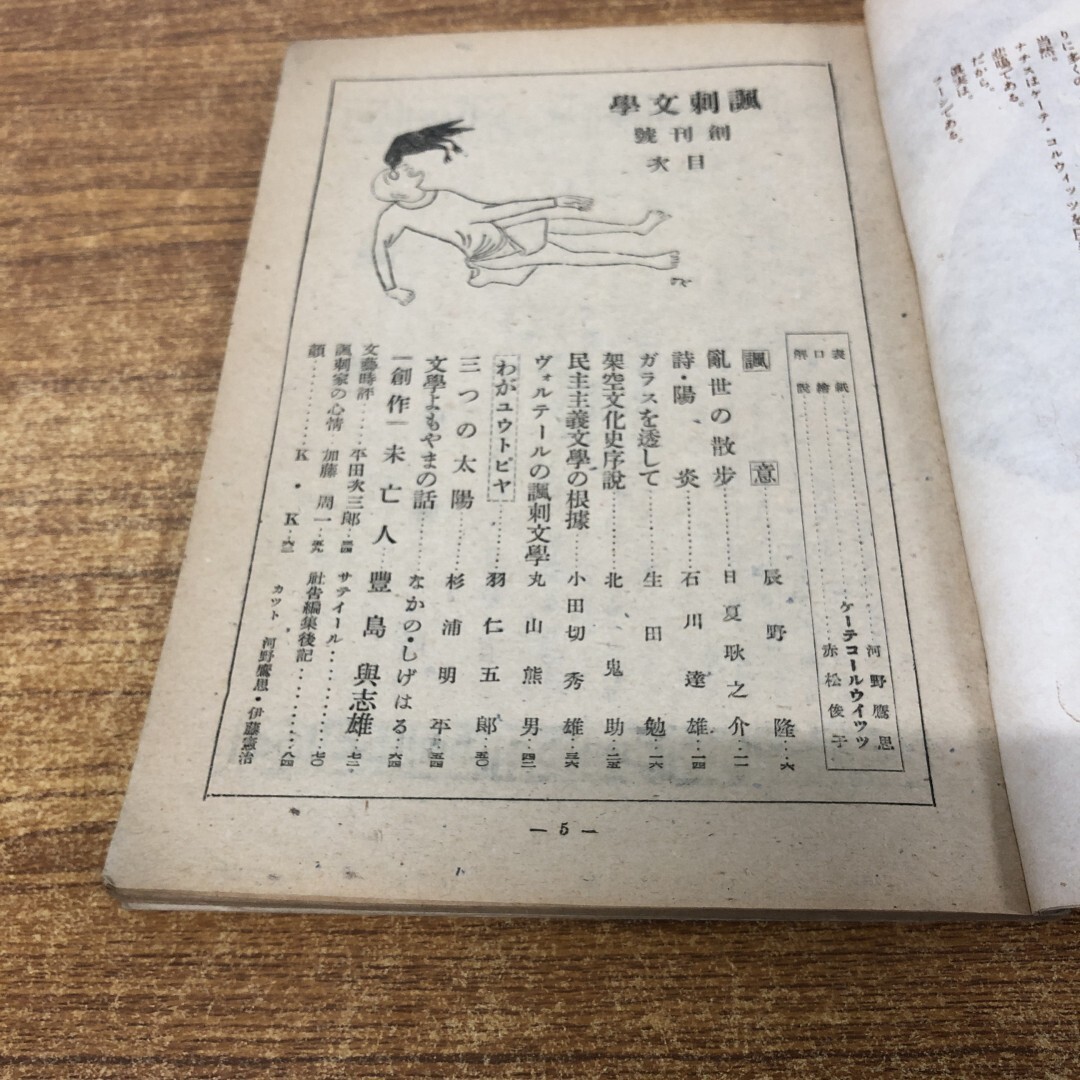 諷刺文學
創刊號
目次
表紙……河野鷹思
口繪……ケーテコールウイツツ
解說……赤松俊子
諷意……辰野隆…六
亂世の散步……日夏耿之介…一一
詩・陽炎……石川達雄…一四
ガラスを透して……生田勉…一六
架空文化史序說……北鬼助…二五
民主主義文學の根據……小田切秀雄…三六
ヴォルテールの諷刺文學 丸山熊男…四二
わがユウトピヤ……羽仁五郎…五〇
三つの太陽……杉浦明平…五四
文學よもやまの話……なかの・しげはる…六四
―創作―未亡人 豐島與志雄…七二
文藝時評……平田次三郎…三四
諷刺家の心情 加藤周一…五九
顔……K・K…六二
サテイール……七〇
社告編集後記……八四
カット 河野鷹思・伊藤憲治
— 5 —
当然。
ナチスはケーテ・コルウイッツを
悲慘である。
だから。
眞実は。
アーンである。